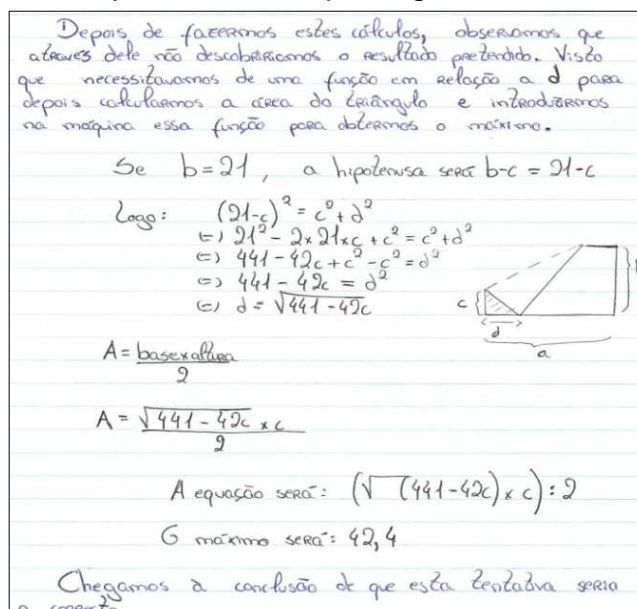 Depois de fazermos estes cálculos, observamos que
através dele não descobririamos o resultado pretendido. Visto
que necessitavamos de uma função em relação a d para
depois calcularmos a área do triângulo e introduzirmos
na máquina essa função para obtermos o máximo.
Se b=21, a hipotenusa será b-c = 21-c
Logo: (21-c)² = c² + d²
(=) 21² - 2x21xc + c² = c² + d²
(=) 441 - 42c + c² - c² = d²
(=) 441 - 42c = d²
(=) d = √441-42c
c
d
a
A = basexaltura
2
A = √441-42c x c
2
A equação será: (√(441-42c) x c) : 2
O máximo será: 42,4
Chegamos à conclusão de que esta tentativa seria